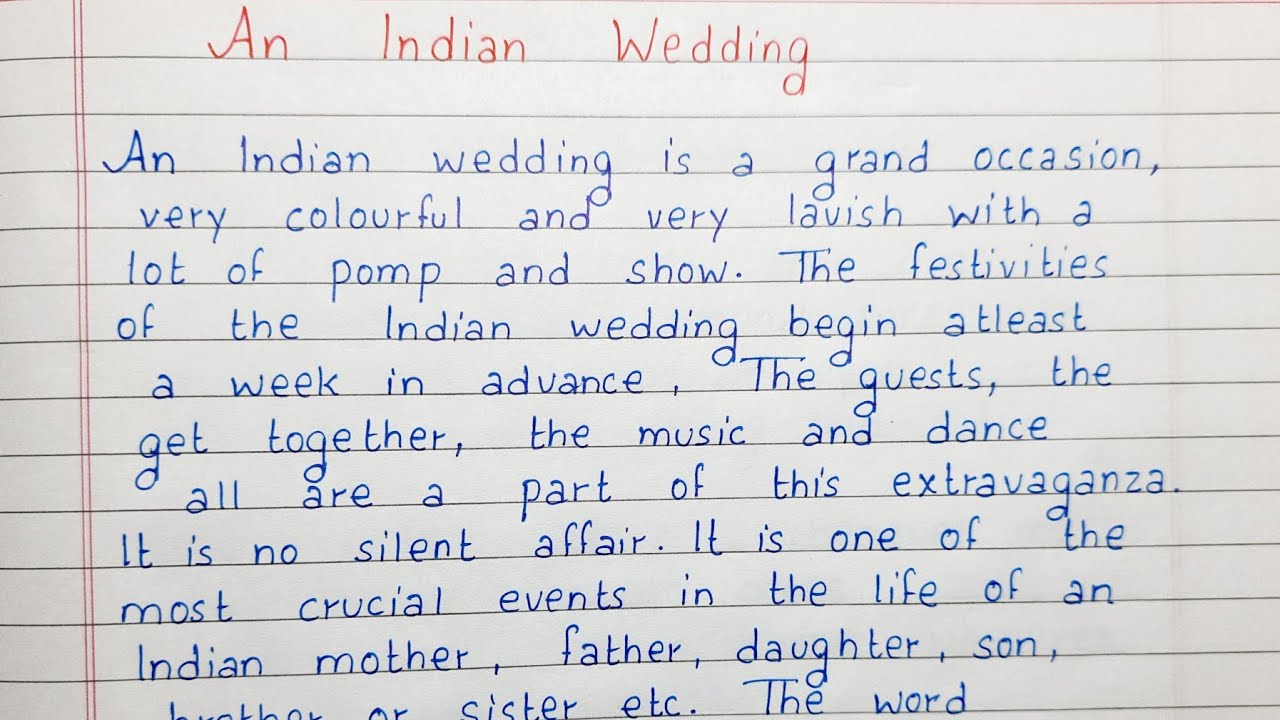 An Indian Wedding
An Indian wedding is a grand occasion,
very colourful and very lavish with a
lot of pomp and show. The festivities
of the Indian wedding begin atleast
a week in advance, The guests, the
get together, the music and dance
all are a part of this extravaganza.
It is no silent affair. It is one of the
most crucial events in the life of an
Indian mother, father, daughter, son,
brother or sister etc. The word